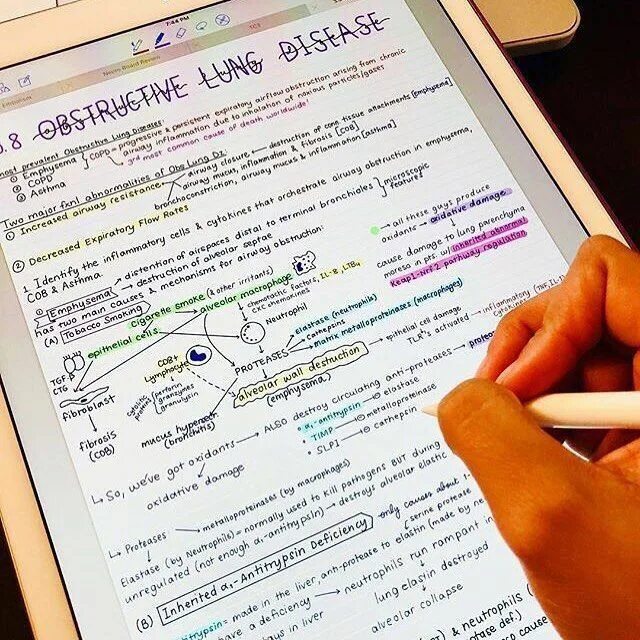 7:44 PM
Norm Board Review
TC3
Embolism
.8 OBSTRUCTIVE LUNG DISEASE
most prevalent Obstructive Lung Diseases:
① Emphysema
② COPD
③ Asthma
COPD = progressive & persistent expiratory airflow obstruction arising from chronic
airway inflammation due to inhalation of noxious particles/gases
3rd most common cause of death worldwide!
Two major fxnl abnormalities of Obs Lung Dz:
① Increased airway resistance
airway closure ← destruction of conn. tissue attachments [emphysema]
airway mucus, inflammation & fibrosis [COB]
bronchoconstriction, airway mucus & inflammation [asthma]
② Decreased Expiratory Flow Rates
1. Identify the inflammatory cells & cytokines that orchestrate airway obstruction in emphysema,
COB & Asthma.
Emphysema
→ distention of airspaces distal to terminal bronchioles
→ destruction of alveolar septae
microscopic
features
has two main causes & mechanisms for airway obstruction:
(A) Tobacco Smoking
→ all these guys produce
oxidants → oxidative damage
cause damage to lung parenchyma
moreso in pts. w/ inherited abnormal
Keap1-Nrf2 pathway regulation
cigarette smoke (& other irritants)
epithelial cells
alveolar macrophage
chemotactic factors, IL-8, LTB₄
CXC chemokines
Neutrophil
TGF-β
CTG
fibroblast
fibrosis
(COB)
CD8+
Lymphocyte
cytotoxic
proteins
perforins
granzymes
granulysin
PROTEASES
elastase (neutrophils)
cathepsins
matrix metalloproteinases (macrophages)
alveolar wall destruction
(emphysema)
→ epithelial cell damage
TLR's activated → inflammatory
cytokines
mucus hypersecr
(bronchitis)
→ ALSO destroy circulating anti-proteases →
• α₁-antitrypsin → ⊖ elastase
• TIMP → ⊖ metalloproteinase
• SLPI → ⊖ cathepsin
↳ So, we've got oxidants
oxidative damage
↳ Proteases → metalloproteinases (by macrophages)
Elastase (by Neutrophils) = normally used to kill pathogens BUT during
unregulated (not enough α₁-antitrypsin) → destroys alveolar elastic
only causes about 1-
(B) Inherited α₁-Antitrypsin Deficiency
serine protease
antitrypsin = made in the liver, anti-protease to elastin (made by ne
have a deficiency → neutrophils run rampant in
in liver
lung elastin destroyed
alveolar collapse
& neutrophils (